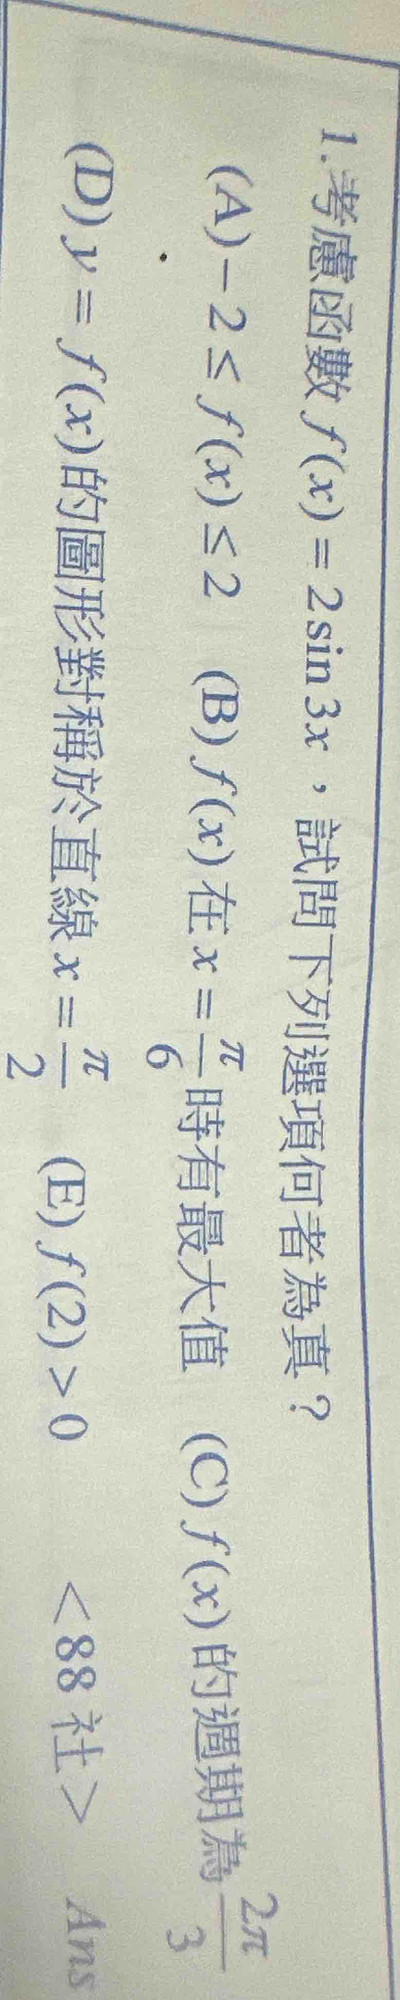 1.考慮函數 f(x) = 2sin3x，試問下列選項何者為真？
(A) −2 ≤ f(x) ≤ 2 (B) f(x) 在 x = π/6 時有最大值 (C) f(x) 的週期為 2π/3
(D) y = f(x) 的圖形對稱於直線 x = π/2 (E) f(2) > 0 <88社> Ans